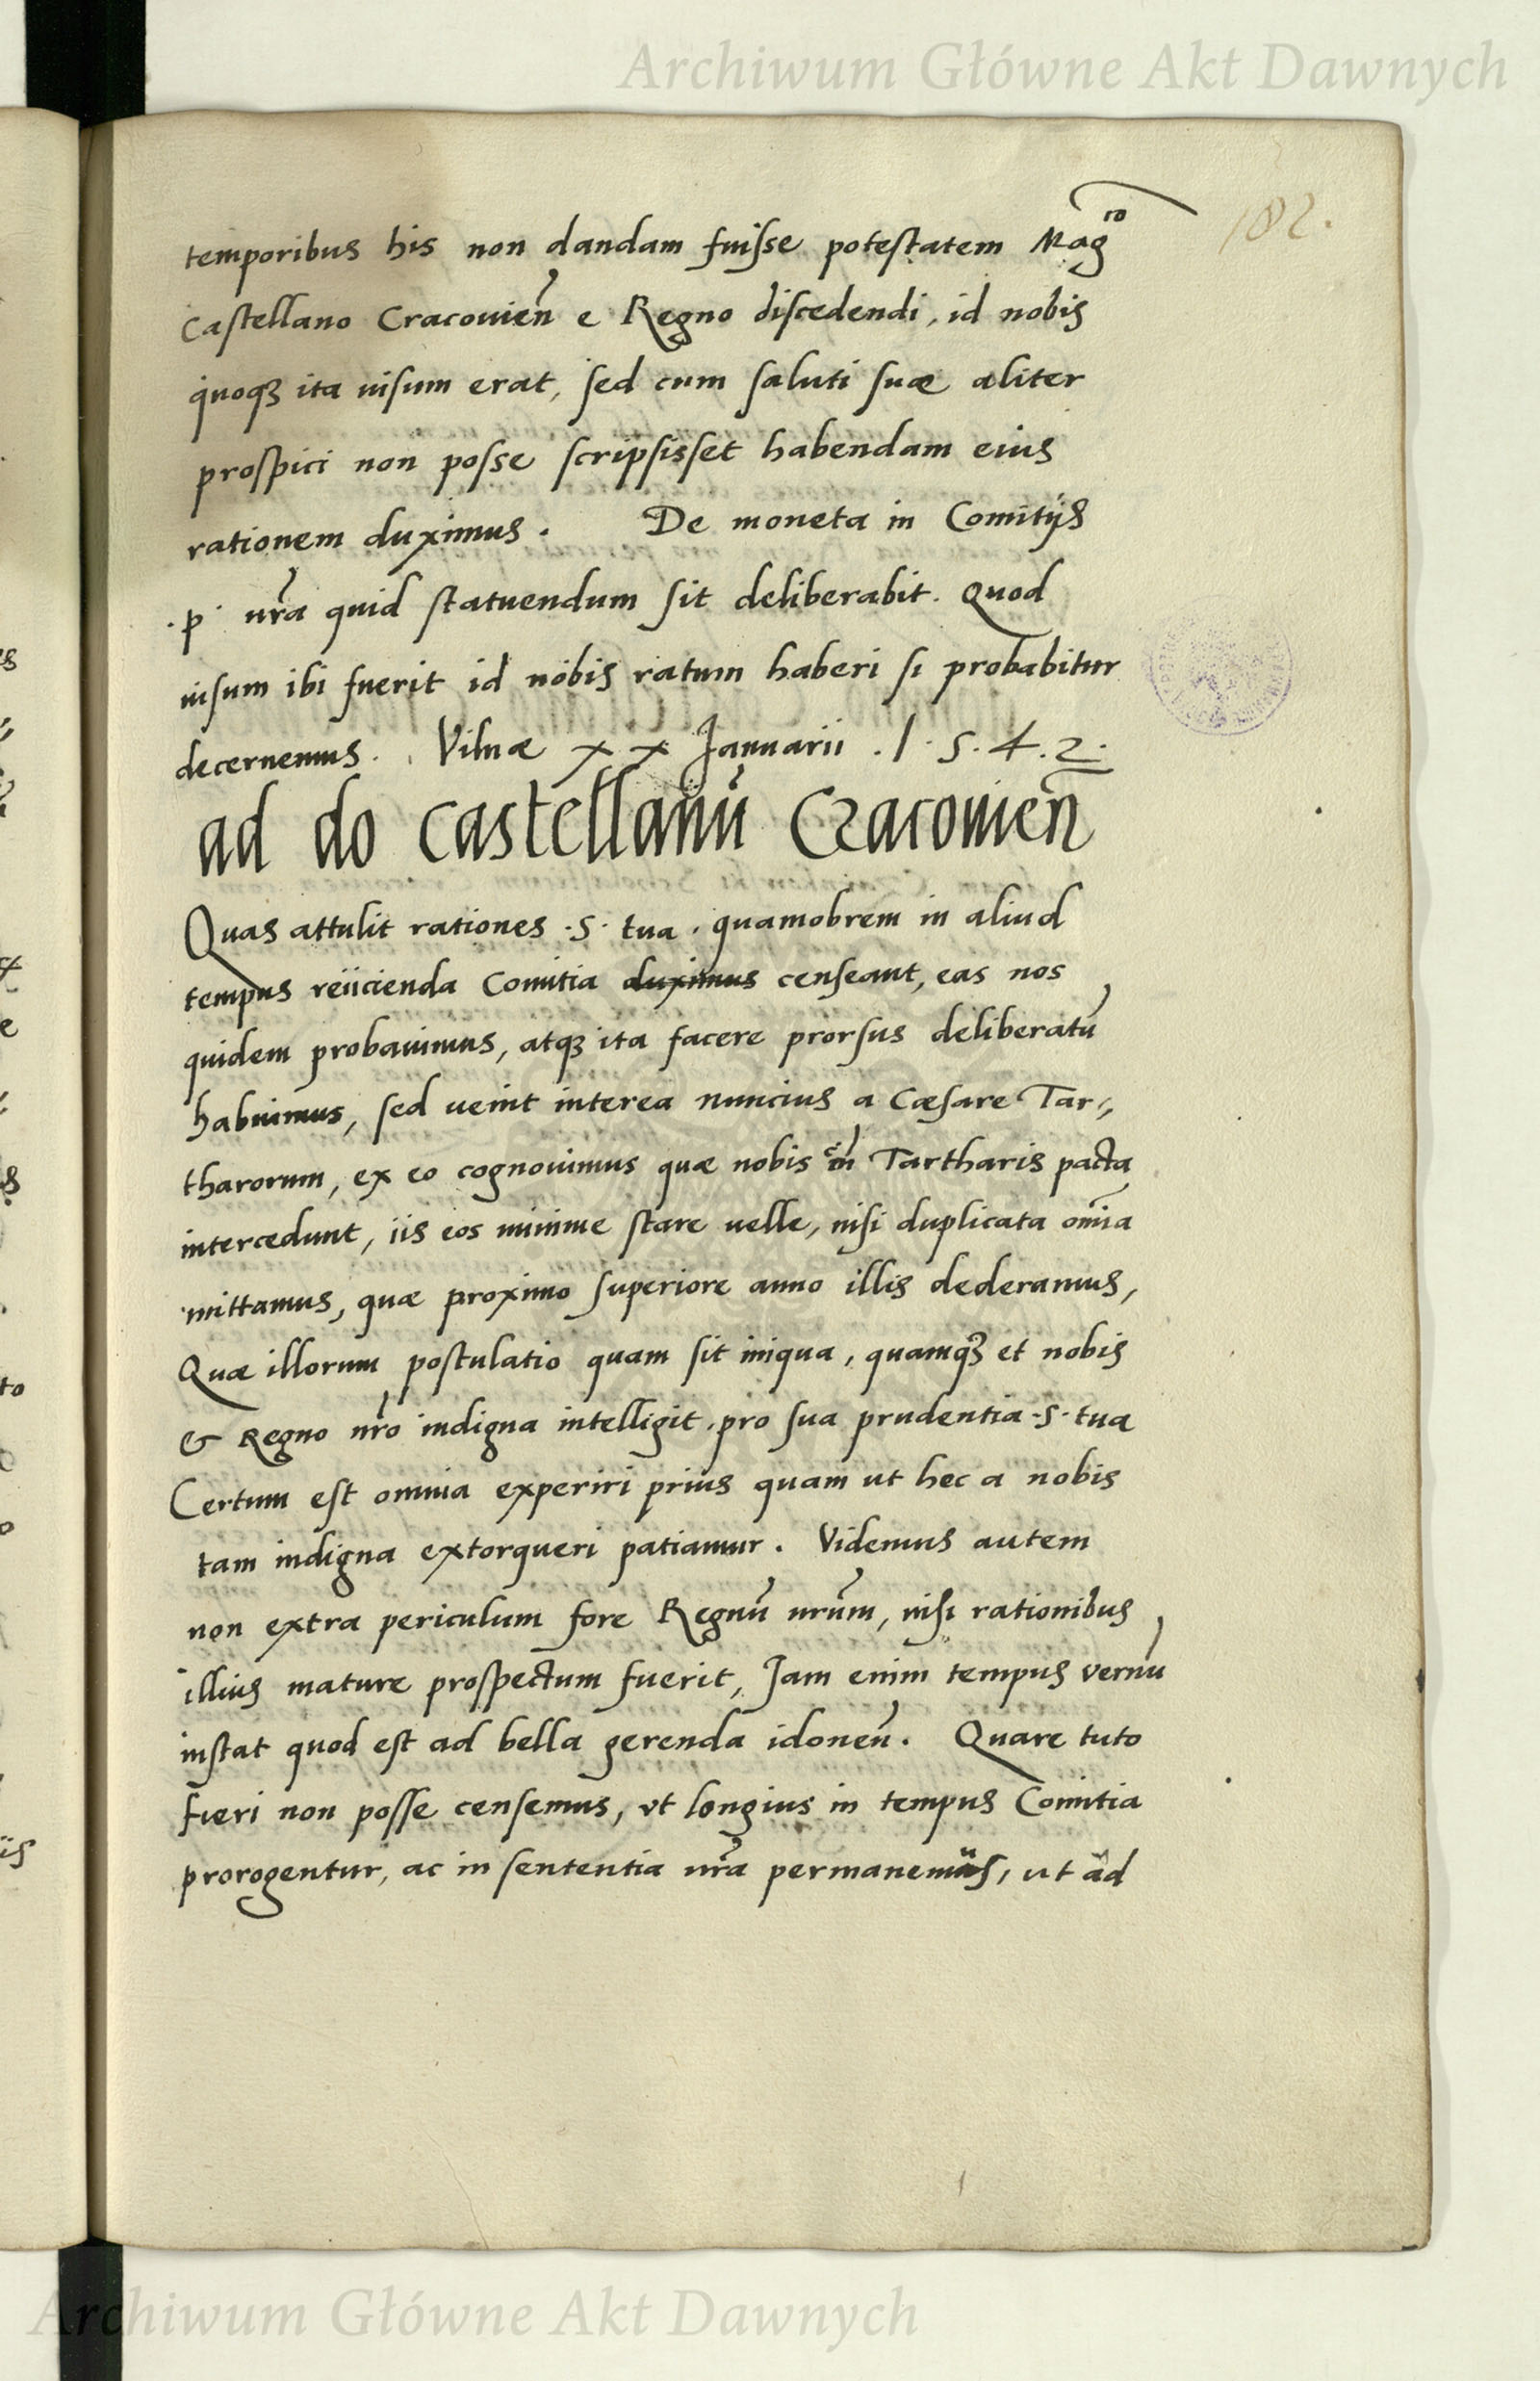 Archiwum Główne Akt Dawnych
182.
temporibus his non dandam fuisse potestatem Mag^ro
Castellano Cracovien̄ e Regno discedendi, id nobis
quoqȝ ita uisum erat, sed cum saluti suæ aliter
prospici non posse scripsisset habendam eius
rationem duximus. De moneta in Comitijs
.p. ur̄a quid statuendum sit deliberabit. Quod
uisum ibi fuerit id nobis ratum haberi si probabitur
decernemus. Vilnæ xx Januarii .1.5.4.2.
ad do castellanū Cracouien̄
Quas attulit rationes .S. tua. quamobrem in aliud
tempus reiicienda Comitia duximus censeant, eas nos
quidem probauimus, atqȝ ita facere prorsus deliberatū
habuimus, sed uenit interea nuncius a Cæsare Tar„
tharorum, ex eo cognouimus quæ nobis cū Tartharis pacta
intercedunt, iis eos minime stare uelle, nisi duplicata om̄ia
mittamus, quæ proximo superiore anno illis dederamus,
Quæ illorum postulatio quam sit iniqua, quamqȝ et nobis
& Regno nr̄o indigna intelligit, pro sua prudentia .S. tua
Certum est omnia experiri prius quam ut hec a nobis
tam indigna extorqueri patiamur. Videmus autem
non extra periculum fore Regnū nr̄um, nisi rationibus
illius mature prospectum fuerit, Jam enim tempus vernū
instat quod est ad bella gerenda idoneū. Quare tuto
fieri non posse censemus, vt longius in tempus Comitia
prorogentur, ac in sententia nr̄a permanemus, ut ad
Archiwum Główne Akt Dawnych